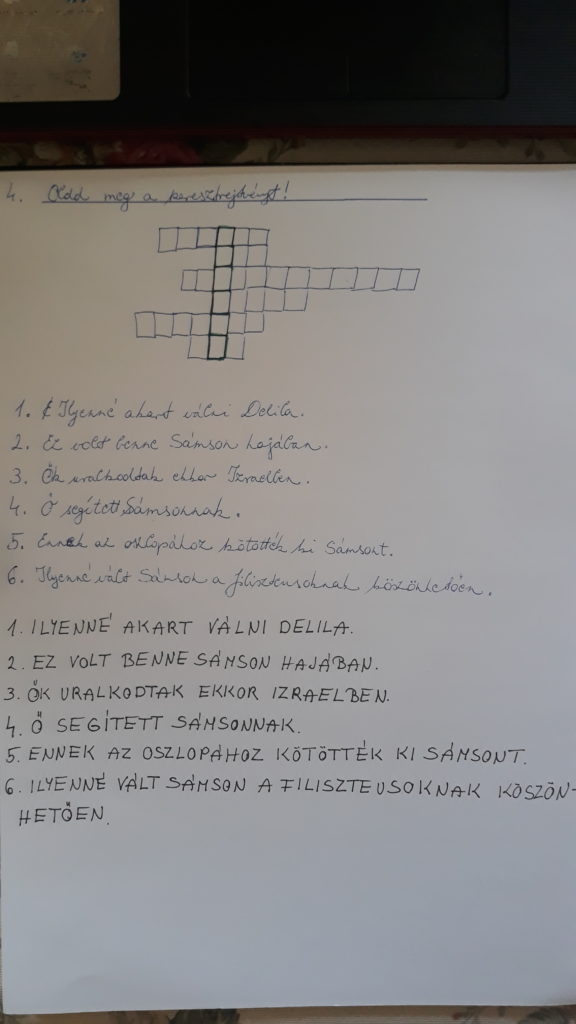 4. Oldd meg a keresztrejtvényt!
1. Ilyenné akart válni Delila.
2. Ez volt benne Sámson hajában.
3. Ők uralkodtak ekkor Izraelben.
4. Ő segített Sámsonnak.
5. Ennek az oszlopához kötötték ki Sámsont.
6. Ilyenné vált Sámson a filiszteusoknak köszönhetően.
1. ILYENNÉ AKART VÁLNI DELILA.
2. EZ VOLT BENNE SÁMSON HAJÁBAN.
3. ŐK URALKODTAK EKKOR IZRAELBEN.
4. Ő SEGÍTETT SÁMSONNAK.
5. ENNEK AZ OSZLOPÁHOZ KÖTÖTTÉK KI SÁMSONT.
6. ILYENNÉ VÁLT SÁMSON A FILISZTEUSOKNAK KÖSZÖN-
HETŐEN.